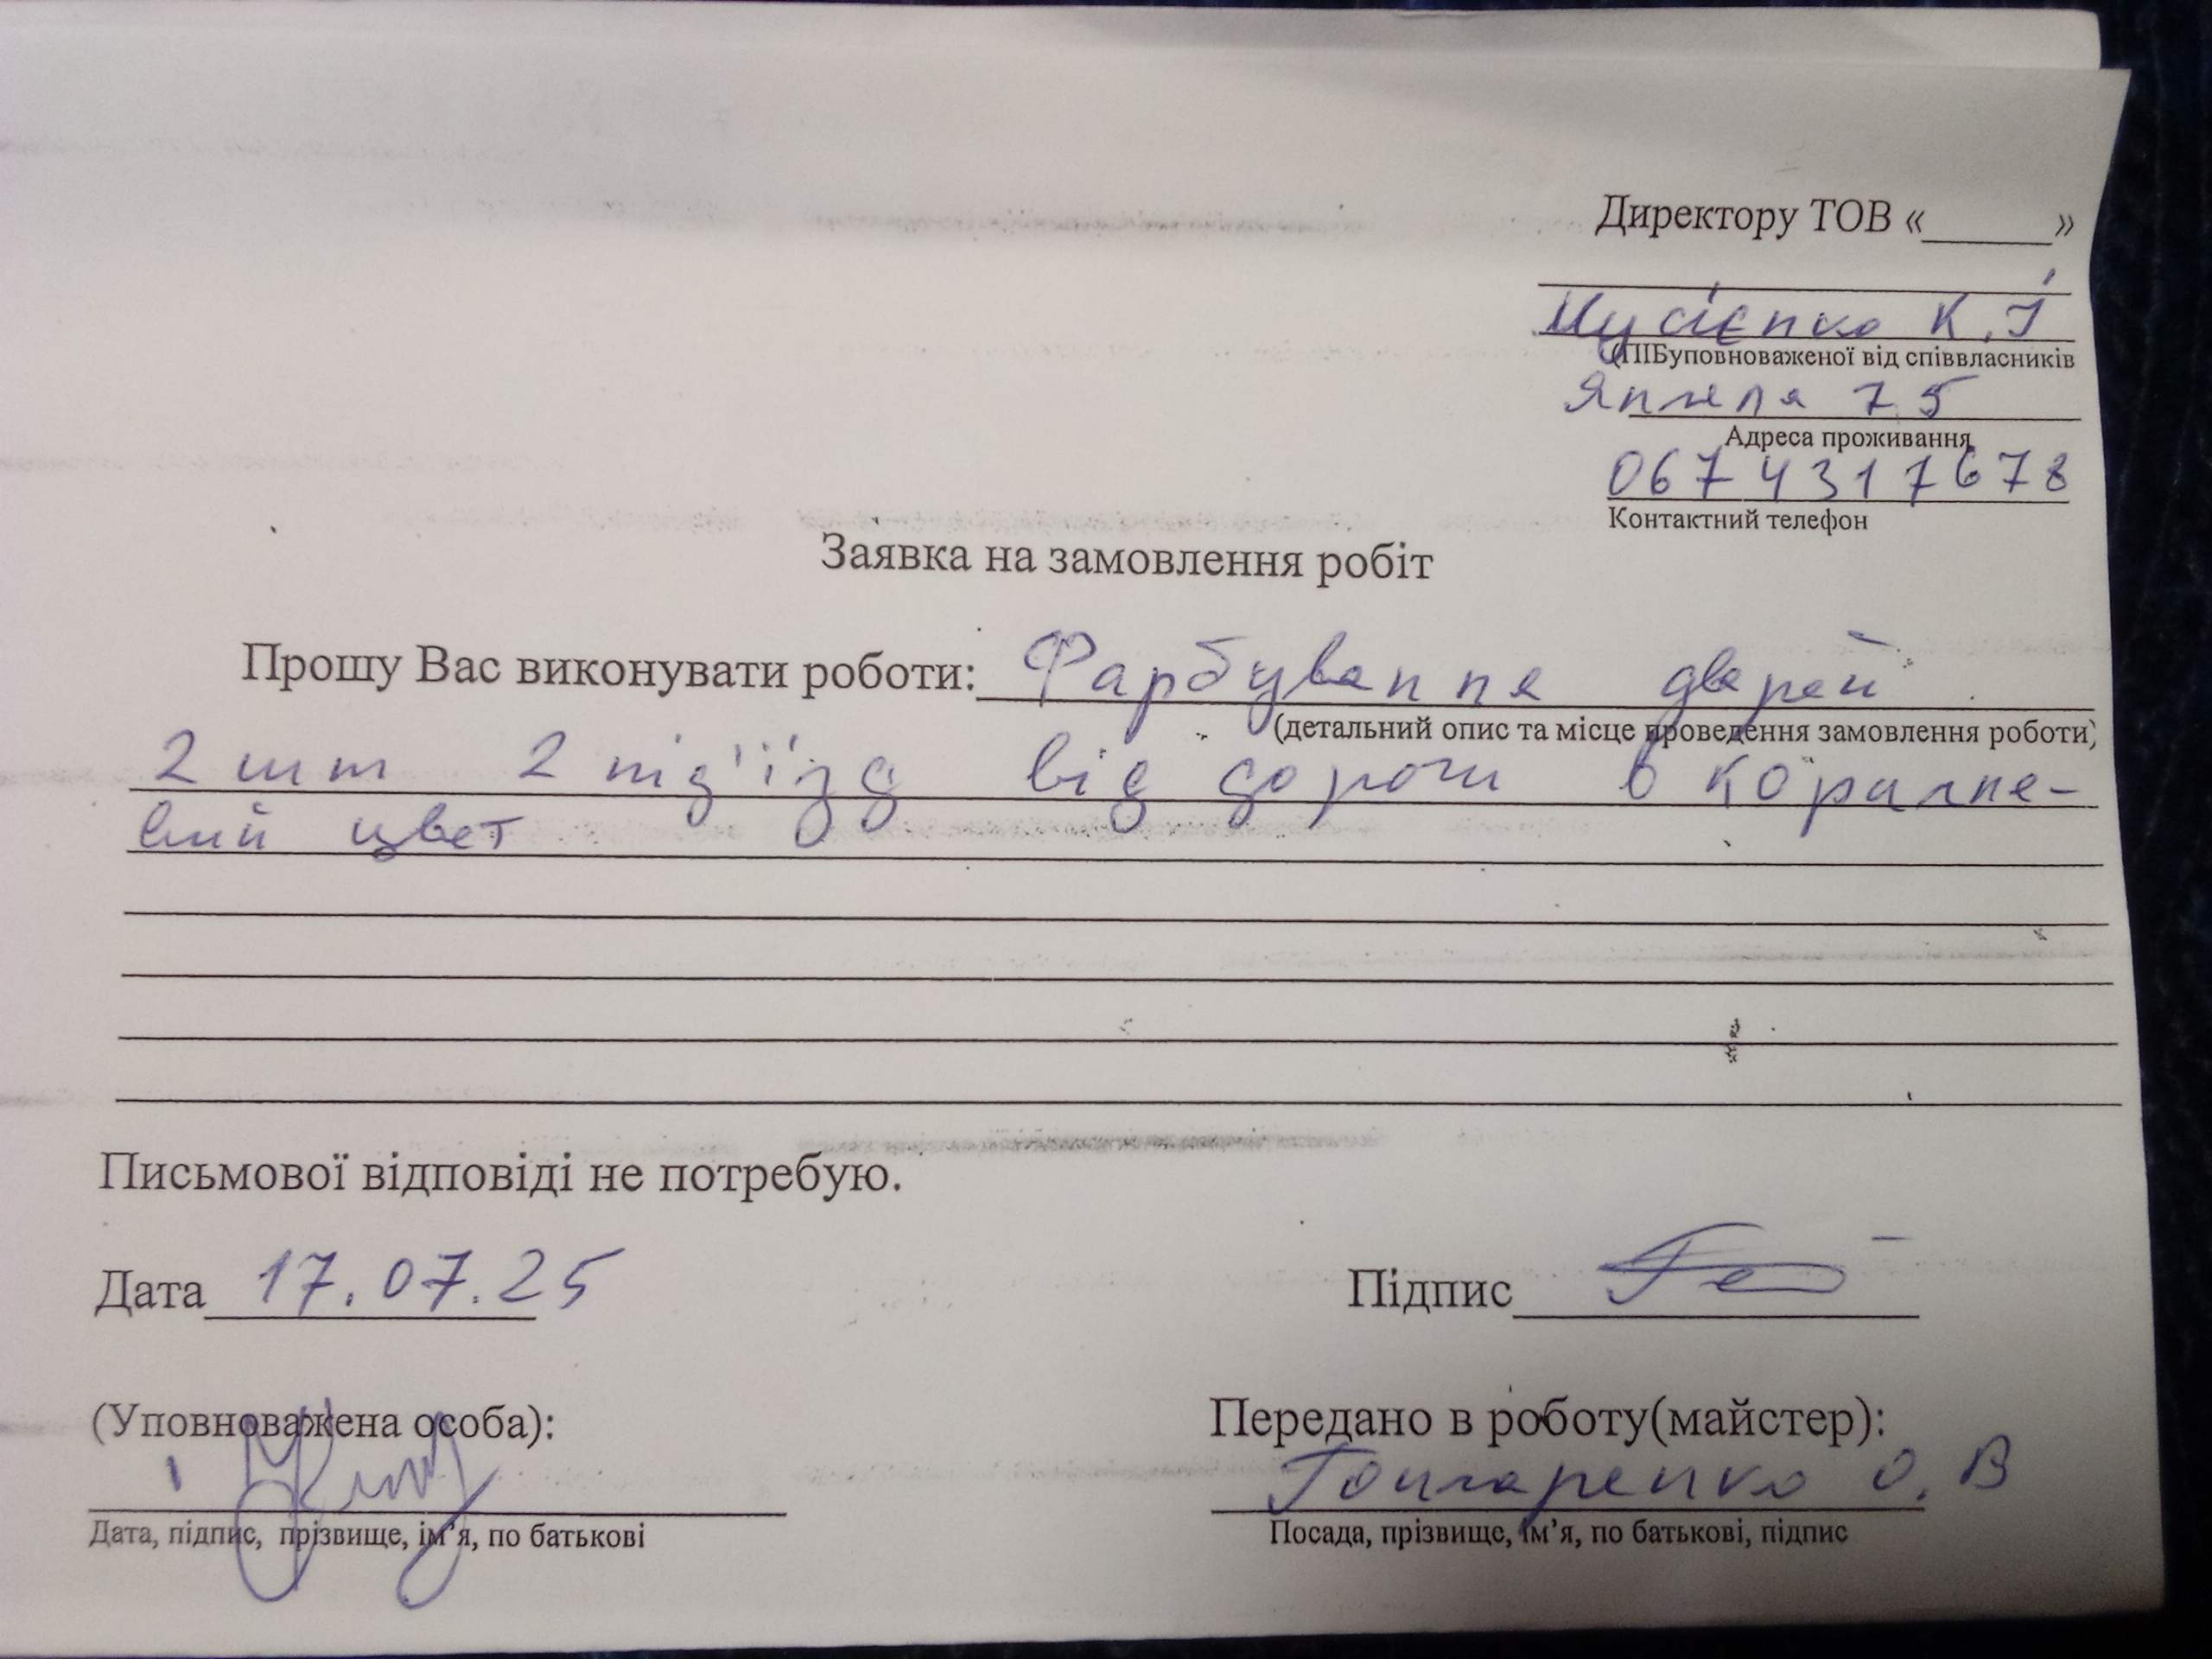 Директору ТОВ «______»
Мусієнко К.І
(ПІБуповноваженої від співвласників
Янгеля 75
Адреса проживання
0674317678
Контактний телефон
Заявка на замовлення робіт
Прошу Вас виконувати роботи: Фарбування дверей
(детальний опис та місце проведення замовлення роботи)
2 шт 2 під'їзд від дороги в коралне-
вий цвет
Письмової відповіді не потребую.
Дата 17.07.25 Підпис
(Уповноважена особа): Передано в роботу(майстер):
Гончаренко О.В
Дата, підпис, прізвище, ім'я, по батькові Посада, прізвище, ім'я, по батькові, підпис